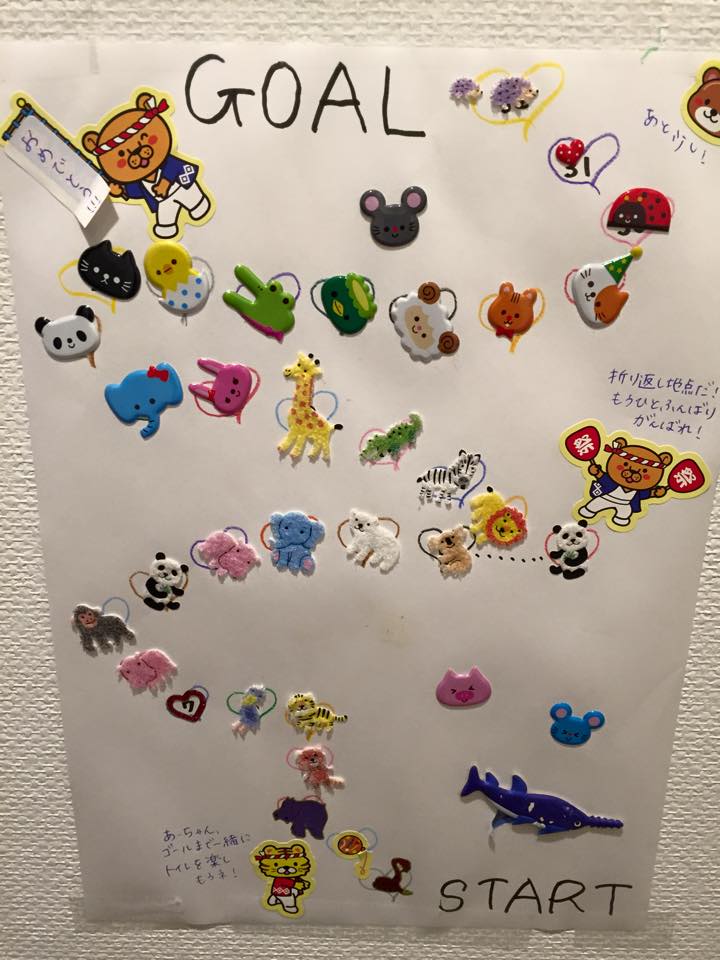 GOAL
おめでとう!!!
あと少し!
31
折り返し地点だ!
もうひとふんばり
がんばれ!
祭
7
あーちゃん、
ゴールまで一緒に
トイレを楽し
もうネ!
START